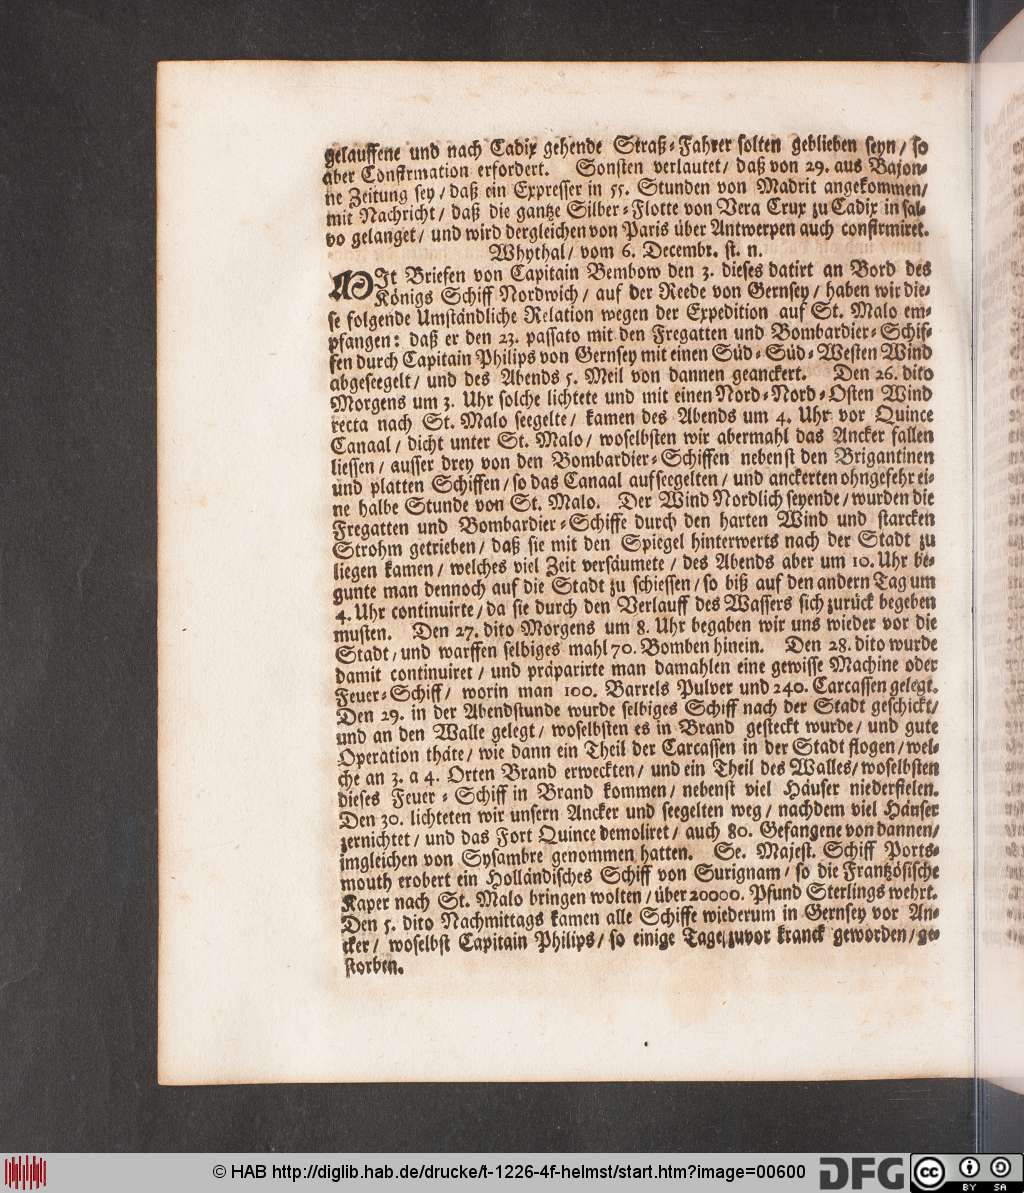 gelauffene und nach Cadix gehende Straß-Fahrer solten geblieben seyn / so
aber Confirmation erfordert. Sonsten verlautet / daß von 29. aus Bajon-
ne Zeitung sey / daß ein Expresser in 55. Stunden von Madrit angekommen /
mit Nachricht / daß die gantze Silber-Flotte von Vera Crux zu Cadix in sal-
vo gelanget / und wird dergleichen von Paris über Antwerpen auch confirmiret.
Whythal / vom 6. Decembr. st. n.
MIt Briefen von Capitain Bembow den 3. dieses datirt an Bord des
Königs Schiff Nordwich / auf der Reede von Gernsey / haben wir die-
se folgende Umständliche Relation wegen der Expedition auf St. Malo em-
pfangen: daß er den 23. passato mit den Fregatten und Bombardier-Schif-
fen durch Capitain Philips von Gernsey mit einen Süd-Süd-Westen Wind
abgeseegelt / und des Abends 5. Meil von dannen geanckert. Den 26. dito
Morgens um 3. Uhr solche lichtete und mit einen Nord-Nord-Osten Wind
recta nach St. Malo seegelte / kamen des Abends um 4. Uhr vor Quince
Canaal / dicht unter St. Malo / woselbsten wir abermahl das Ancker fallen
liessen / ausser drey von den Bombardier-Schiffen nebenst den Brigantinen
und platten Schiffen / so das Canaal aufseegelten / und anckerten ohngefehr ei-
ne halbe Stunde von St. Malo. Der Wind Nordlich seyende / wurden die
Fregatten und Bombardier-Schiffe durch den harten Wind und starcken
Strohm getrieben / daß sie mit den Spiegel hinterwerts nach der Stadt zu
liegen kamen / welches viel Zeit versäumete / des Abends aber um 10. Uhr be-
gunte man dennoch auf die Stadt zu schiessen / so biß auf den andern Tag um
4. Uhr continuirte / da sie durch den Verlauff des Wassers sich zurück begeben
musten. Den 27. dito Morgens um 8. Uhr begaben wir uns wieder vor die
Stadt / und warffen selbiges mahl 70. Bomben hinein. Den 28. dito wurde
damit continuiret / und präparirte man damahlen eine gewisse Machine oder
Feuer-Schiff / worin man 100. Barrels Pulver und 240. Carcassen gelegt.
Den 29. in der Abendstunde wurde selbiges Schiff nach der Stadt geschickt /
und an den Walle gelegt / woselbsten es in Brand gesteckt wurde / und gute
Operation thäte / wie dann ein Theil der Carcassen in der Stadt flogen / wel-
che an 3. a 4. Orten Brand erweckten / und ein Theil des Walles / woselbsten
dieses Feuer-Schiff in Brand kommen / nebenst viel Häuser niederfielen.
Den 30. lichteten wir unsern Ancker und seegelten weg / nachdem viel Häuser
zernichtet / und das Fort Quince demoliret / auch 80. Gefangene von dannen /
imgleichen von Sysambre genommen hatten. Se. Majest. Schiff Ports-
mouth erobert ein Holländisches Schiff von Surignam / so die Frantzösische
Kaper nach St. Malo bringen wolten / über 20000. Pfund Sterlings wehrt.
Den 5. dito Nachmittags kamen alle Schiffe wiederum in Gernsey vor An-
cker / woselbst Capitain Philips / so einige Tage zuvor kranck geworden / ge-
storben.
© HAB http://diglib.hab.de/drucke/t-1226-4f-helmst/start.htm?image=00600 DFG cc BY SA